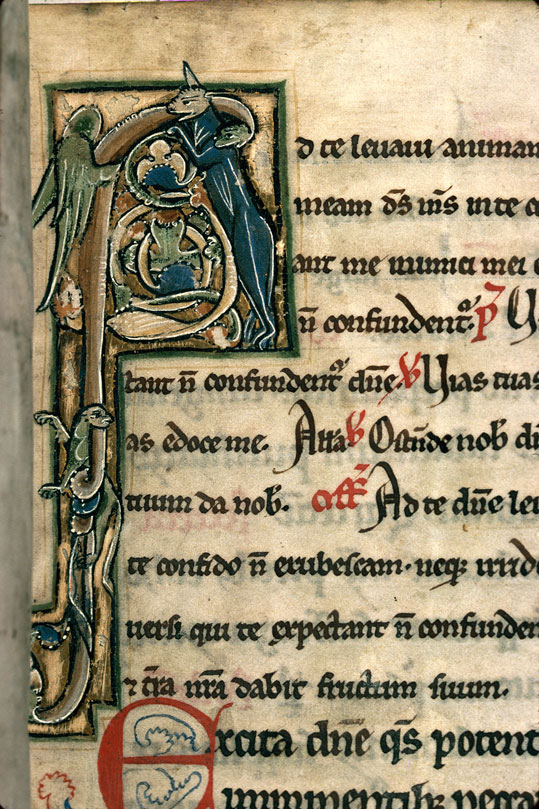 d te levavi animam
meam d̄s m̄s in te c
ant me inimici mei
n̄ confundent̉. p̄ U
tant n̄ confundent̉ dn̄e. v̄ Vias tuas
as edoce me. Alla v̄ Ostende nob̄ dn̄
tuum da nob̄. off̄ Ad te dn̄e lev
te confido n̄ erubescam. neqꝫ irride
versi qui te expectant n̄ confunden
⁊ t̄ra nr̄a dabit fructum suum.
Excita dn̄e q̄s potent
imminentibꝫ pecca